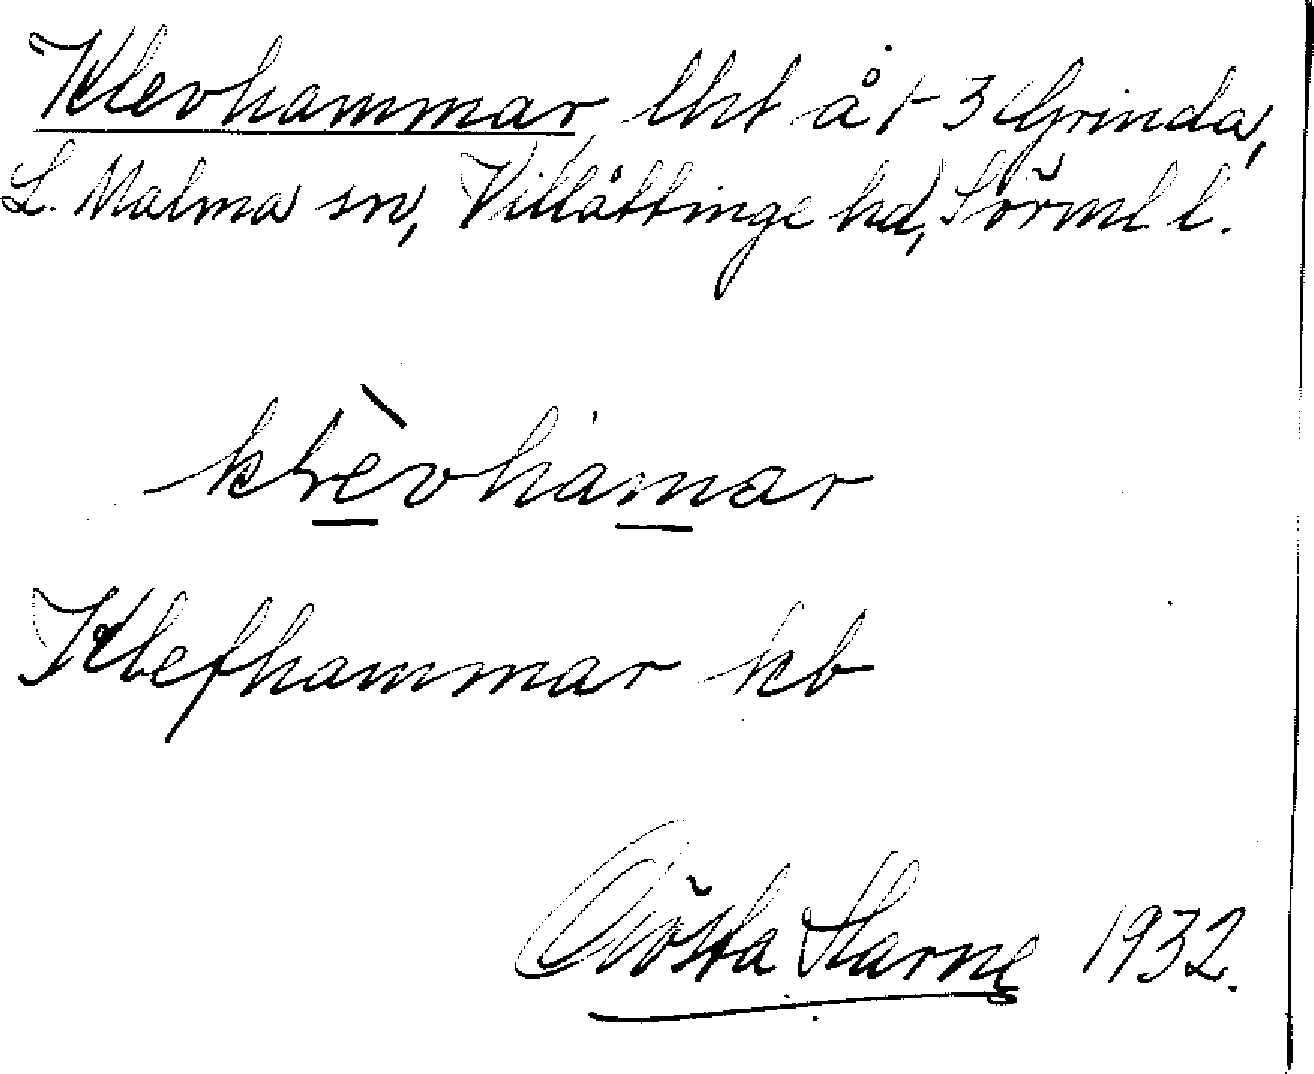 Klevhammar, lht åt 3 Grinda,
L. Malma sn, Villåttinge hd, Sörml l.
klèvhamar
Klefhammar kb
Gösta Harne 1932.